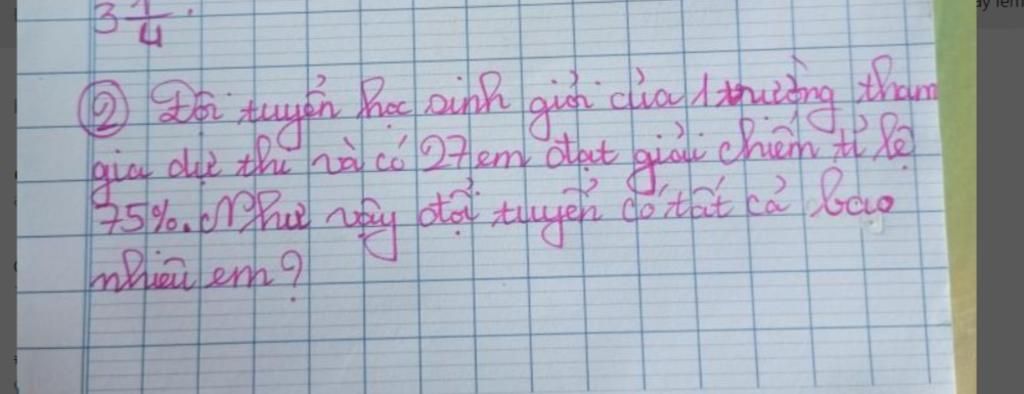 3 1/4.
② Đội tuyển học sinh giỏi của 1 trường tham
gia dự thi và có 27 em đạt giải chiếm tỉ lệ
75%. Như vậy đội tuyển có tất cả bao
nhiêu em?